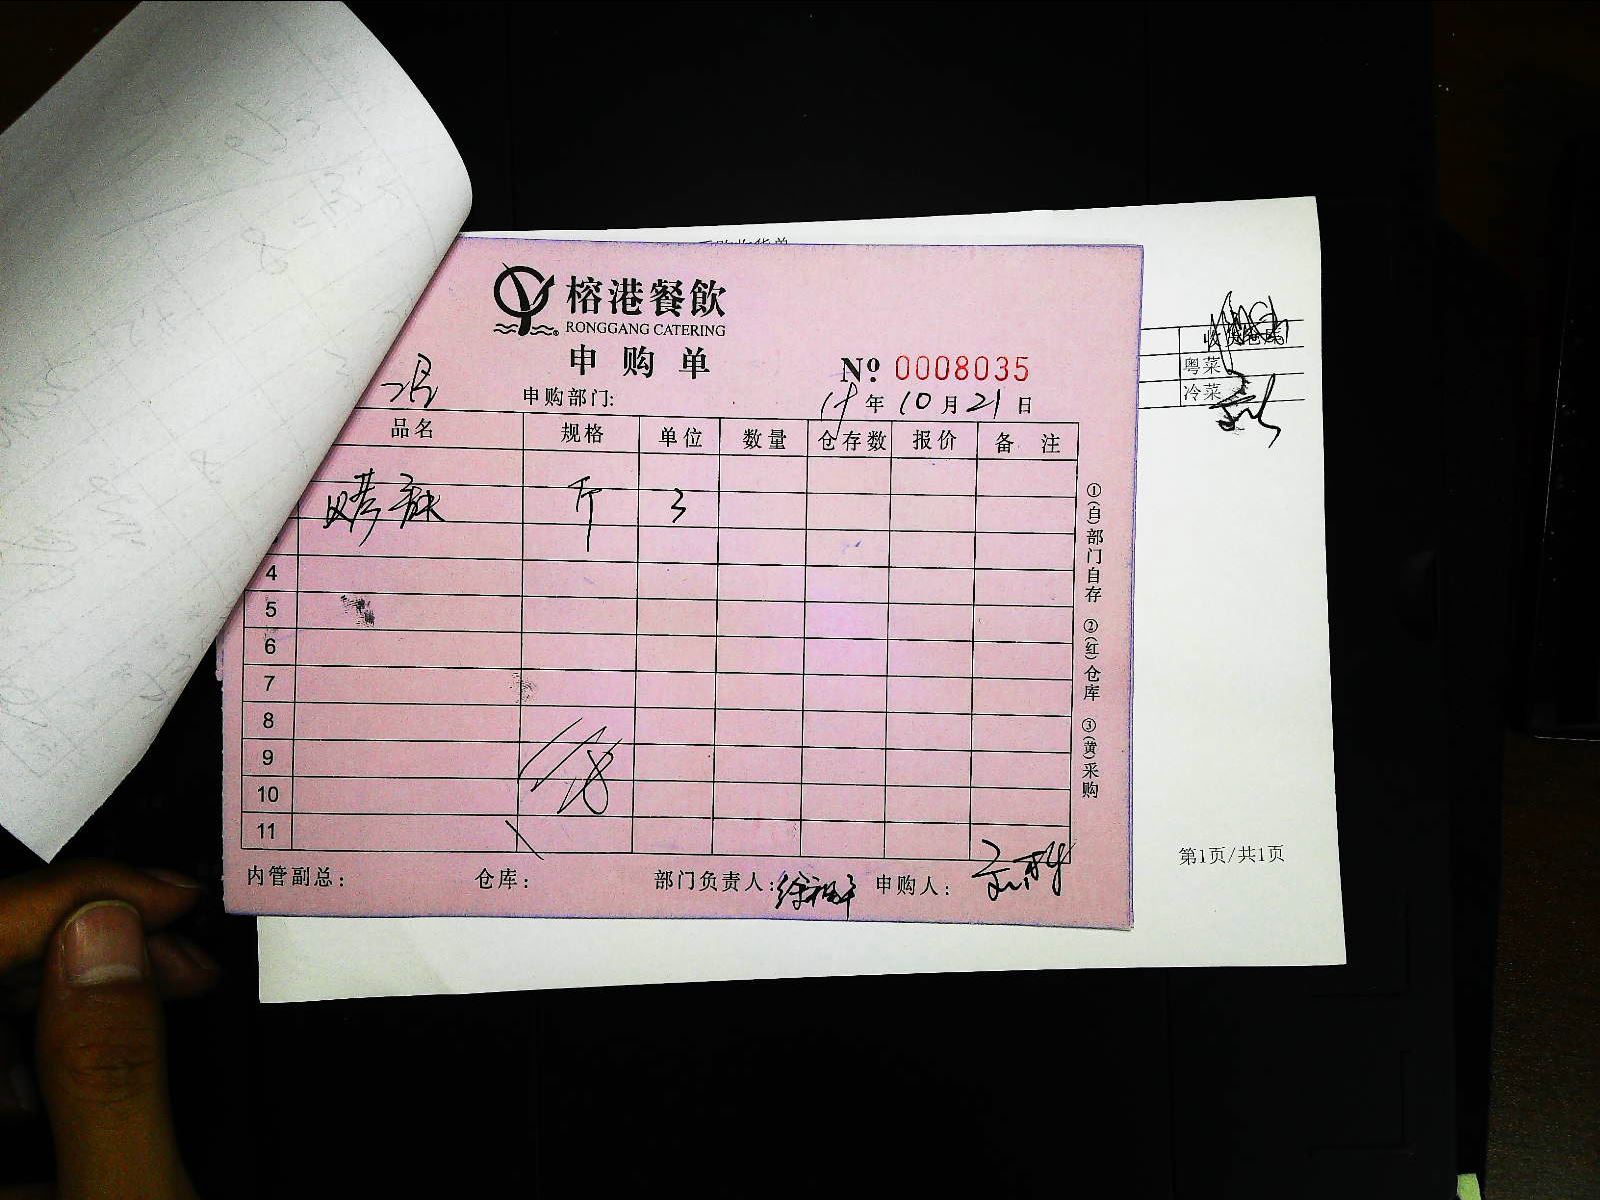 榕港餐飲
RONGGANG CATERING
申购单
№ 0008035
申购部门:
年 10 月 21 日
品名 规格 单位 数量 仓存数 报价 备 注
斤 3
4
5
6
7
8
9
10
11
①(白)部门自存 ②(红)仓库 ③(黄)采购
内管副总: 仓库: 部门负责人: 申购人:
粤菜
冷菜
第1页/共1页